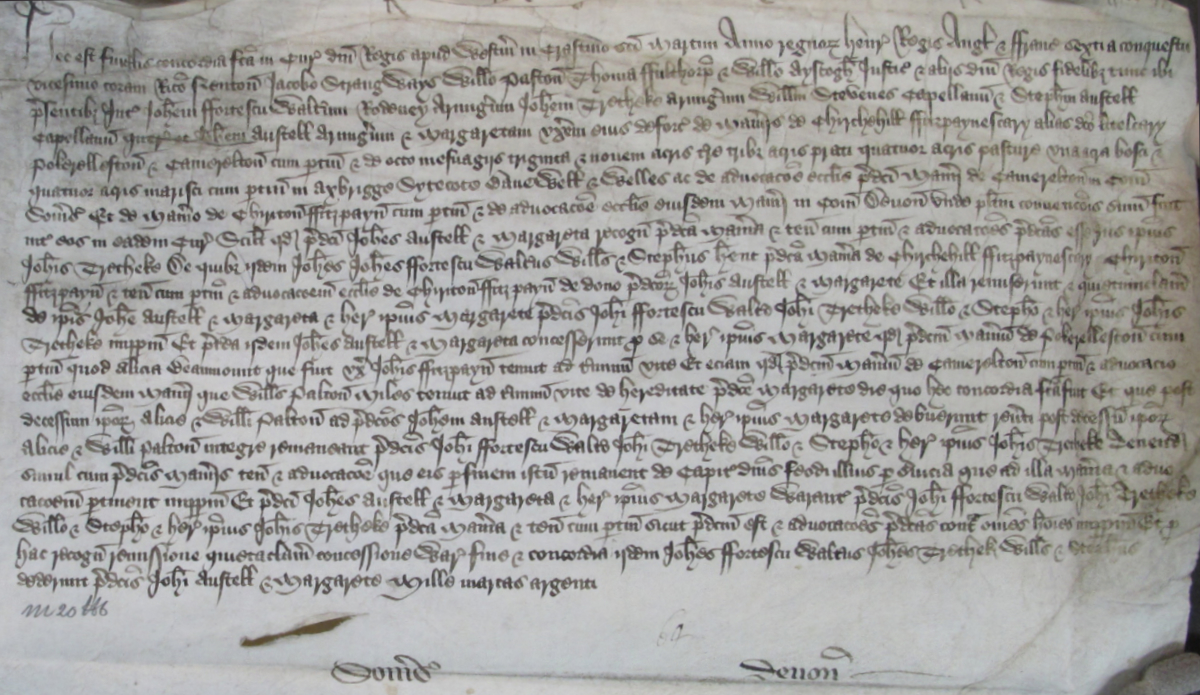 Hec est finalis concordia fca in Cur dni Regis apud Westm in Crastino sci Martini Anno regnor Henr Regis Angl & ffranc sexti a conquestu
vicesimo coram Rico Neuton Jacobo Strangways Willo Paston Thoma ffulthorp & Willo Ayscogh Justic & aliis dni Regis fidelibz tunc ibi
psentibz Int Johem ffortescu Waltum Rodeney Armigum Johem Tretheke armigum Willm Stevenes Capellanu & Stephm Austell
Capellanum quer Austell armigum & Margaretam uxem eius deforc de Maniis de Chirchehill ffitzpaynescary alias dco litelcary
Pokerelleston & Camerelton cum ptin & de octo mesuagiis triginta & novem acris tre tribz acris prati quatuor acris pasture una acra bosci &
quatuor acris marisci cum ptin in Axbrigge Welles & Welles ac de advocacoe ecclie pdci Manij de Camerelton in Com
Soms Et de Manio de Chiriton ffitzpayn cum ptin & de advocacoe ecclie eiusdem Manij in Com Devon Unde plitm convencois sum fuit
int eos in eadem Cur Scilt qd pdci Johes Austell & Margareta recogn pdca Mania & ten cum ptin & advocacoes pdcas esse Jus ipius
Johis Tretheke De quibz iidem Johes Johes ffortescu Waltus Wills & Stephus hent pdca Mania de Chirchehill ffitzpaynescary Chiriton
ffitzpayn & ten cum ptin & advocacoem ecclie de Chiriton ffitzpayn de dono pdcor Johis Austell & Margarete Et illa remiserunt & quietumclam
de ipis Johe Austell & Margareta & her ipius Margarete pdcis Johi ffortescu Walto Johi Tretheke Willo & Stepho & her ipius Johis
Tretheke imppm Et pterea iidem Johes Austell & Margareta concesserunt p se & her ipius Margarete qd pdcm Maniu de Pokerelleston cum
ptin quod Alicia Beaumount que fuit ux Johis ffitzpayn tenuit ad tminu vite Et eciam qd pdcm Maniu de Camerelton cum ptin & advocacio
ecclie eiusdem Manij que Wills Palton Miles tenuit ad tminu vite de hereditate pdce Margarete die quo hec concordia fca fuit Et que post
decessum ipor Alicie & Willi Palton ad pdcos Johem Austell & Margaretam & her ipius Margarete debuerunt revti post decessu ipor
Alicie & Willi Palton integre remaneant pdcis Johi ffortescu Walto Johi Tretheke Willo & Stepho & her ipius Johis Tretheke Tenend
simul cum pdcis Maniis ten & advocacoe que eis p finem istu remanent de Capit dnis feodi illius p svicia que ad illa Mania & advo
cacoem ptinent imppm Et pdci Johes Austell & Margareta & her ipius Margarete Warant pdcis Johi ffortescu Walto Johi Tretheke
Willo & Stepho & her ipius Johis Tretheke pdca Mania & ten cum ptin sicut pdcm est & advocacoes pdcas cont omes hoies imppm Et p
hac recogn remissione quietaclam concessione War fine & concordia iidem Johes ffortescu Waltus Johes Tretheke Wills & Stephus
dederunt pdcis Johi Austell & Margarete Mille marcas argenti
m 20 H6
Somse Devon